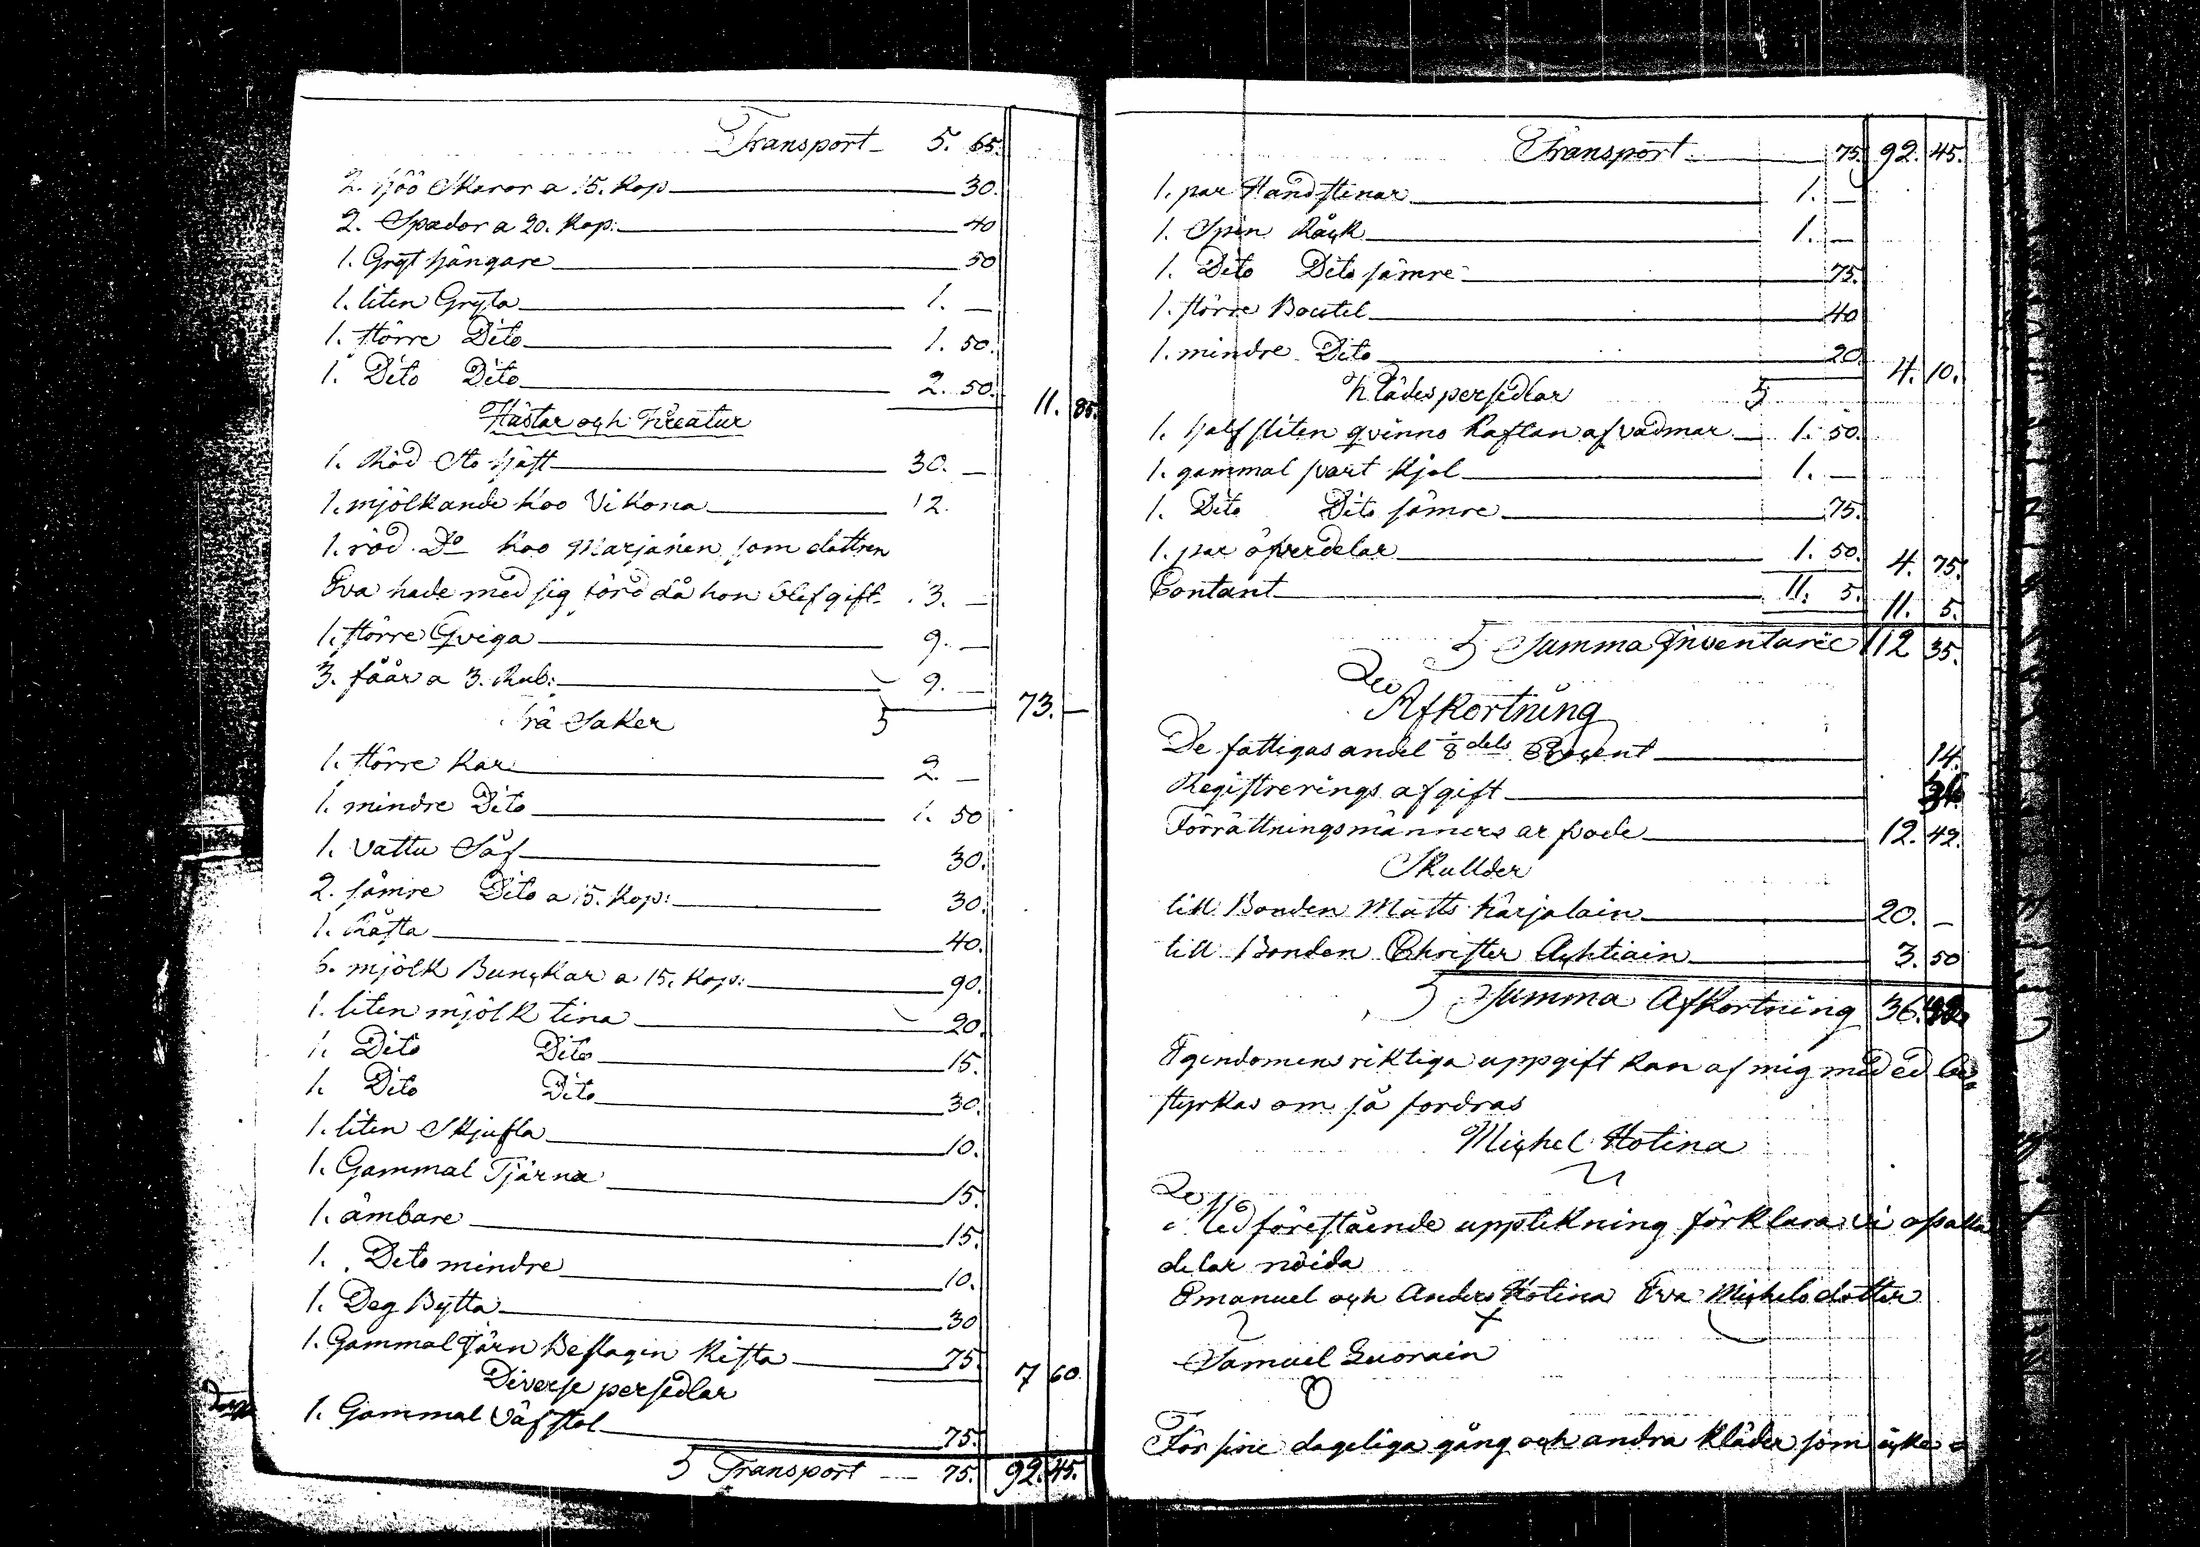 Transport 5. 65.
2. höö Skaror a 15. Kop 30.
2. Spador a 20. Kop: 40
1. Gryt hängare 50
1. liten Gryta 1. —
1. större Dito 1. 50.
1. Dito Dito 2. 50. 11. 85.
Hästar och Kreatur
1. Röd Sto häst 30. —
1. mjölkande Koo Vikona 12.
1. röd Do Koo Marjanen som dottren
Eva hade med sigförd då hon blef gift 13. —
1. större Qviga 9. —
3. fåår a 3. Rub: 9. — 73. —
Trä Saker
1. större Kar 2. —
1. mindre Dito 1. 50
1. Vattu Såf 30.
2. sämre Dito a 15. Kop: 30.
1. 40.
6. mjölk Bunckar a 15. Kop: 90.
1. liten mjölk tina 20.
1. Dito Dito 15.
1. Dito Dito 30.
1. liten Skjufla 10.
1. Gammal Tjärna 15.
1. ämbare 15.
1. Dito mindre 10.
1. Deg Bytta 30
1. Gammal Järn Beslagin Kista 75. 7 60.
Diverse persedlar
1. Gammal Väfstol 75.
Transport 75. 92. 45.
Transport 75. 92. 45.
1. par Handstenar 1. —
1. Spin Råck 1. —
1. Dito Dito sämre 75.
1. större Bocstel 40
1. mindre Dito 20. 4. 10.
Klädes persedlar
1. half sliten qvinno Kaftan af vadmar 1. 50.
1. gammal svart Kjol 1. —
1. Dito Dito sämre 75.
1. par öfverdelar 1. 50. 4. 75.
Contant 11. 5. 11. 5.
Summa Inventarie 112 35.
Afkortning
De fattigas andel 1/8 dels Procent 14.
Registrerings afgift
Förrättningsmänners arfvode 12. 42.
Skullder
till Bonden Matts Karjalain 20. —
till Bonden Christer Achtiain 3. 50
Summa Afkortning 36.
Egendomens riktiga uppgift kan af mig med ed be=
styrkas om så fordras
Michel Hotina
Med föreståede upptekning förklara vi oss alla
delar nöida
Emanuel och Anders Hotina Eva Michelsdotter
Samuel Luorain
För sine dageliga gång och andra kläder som icke